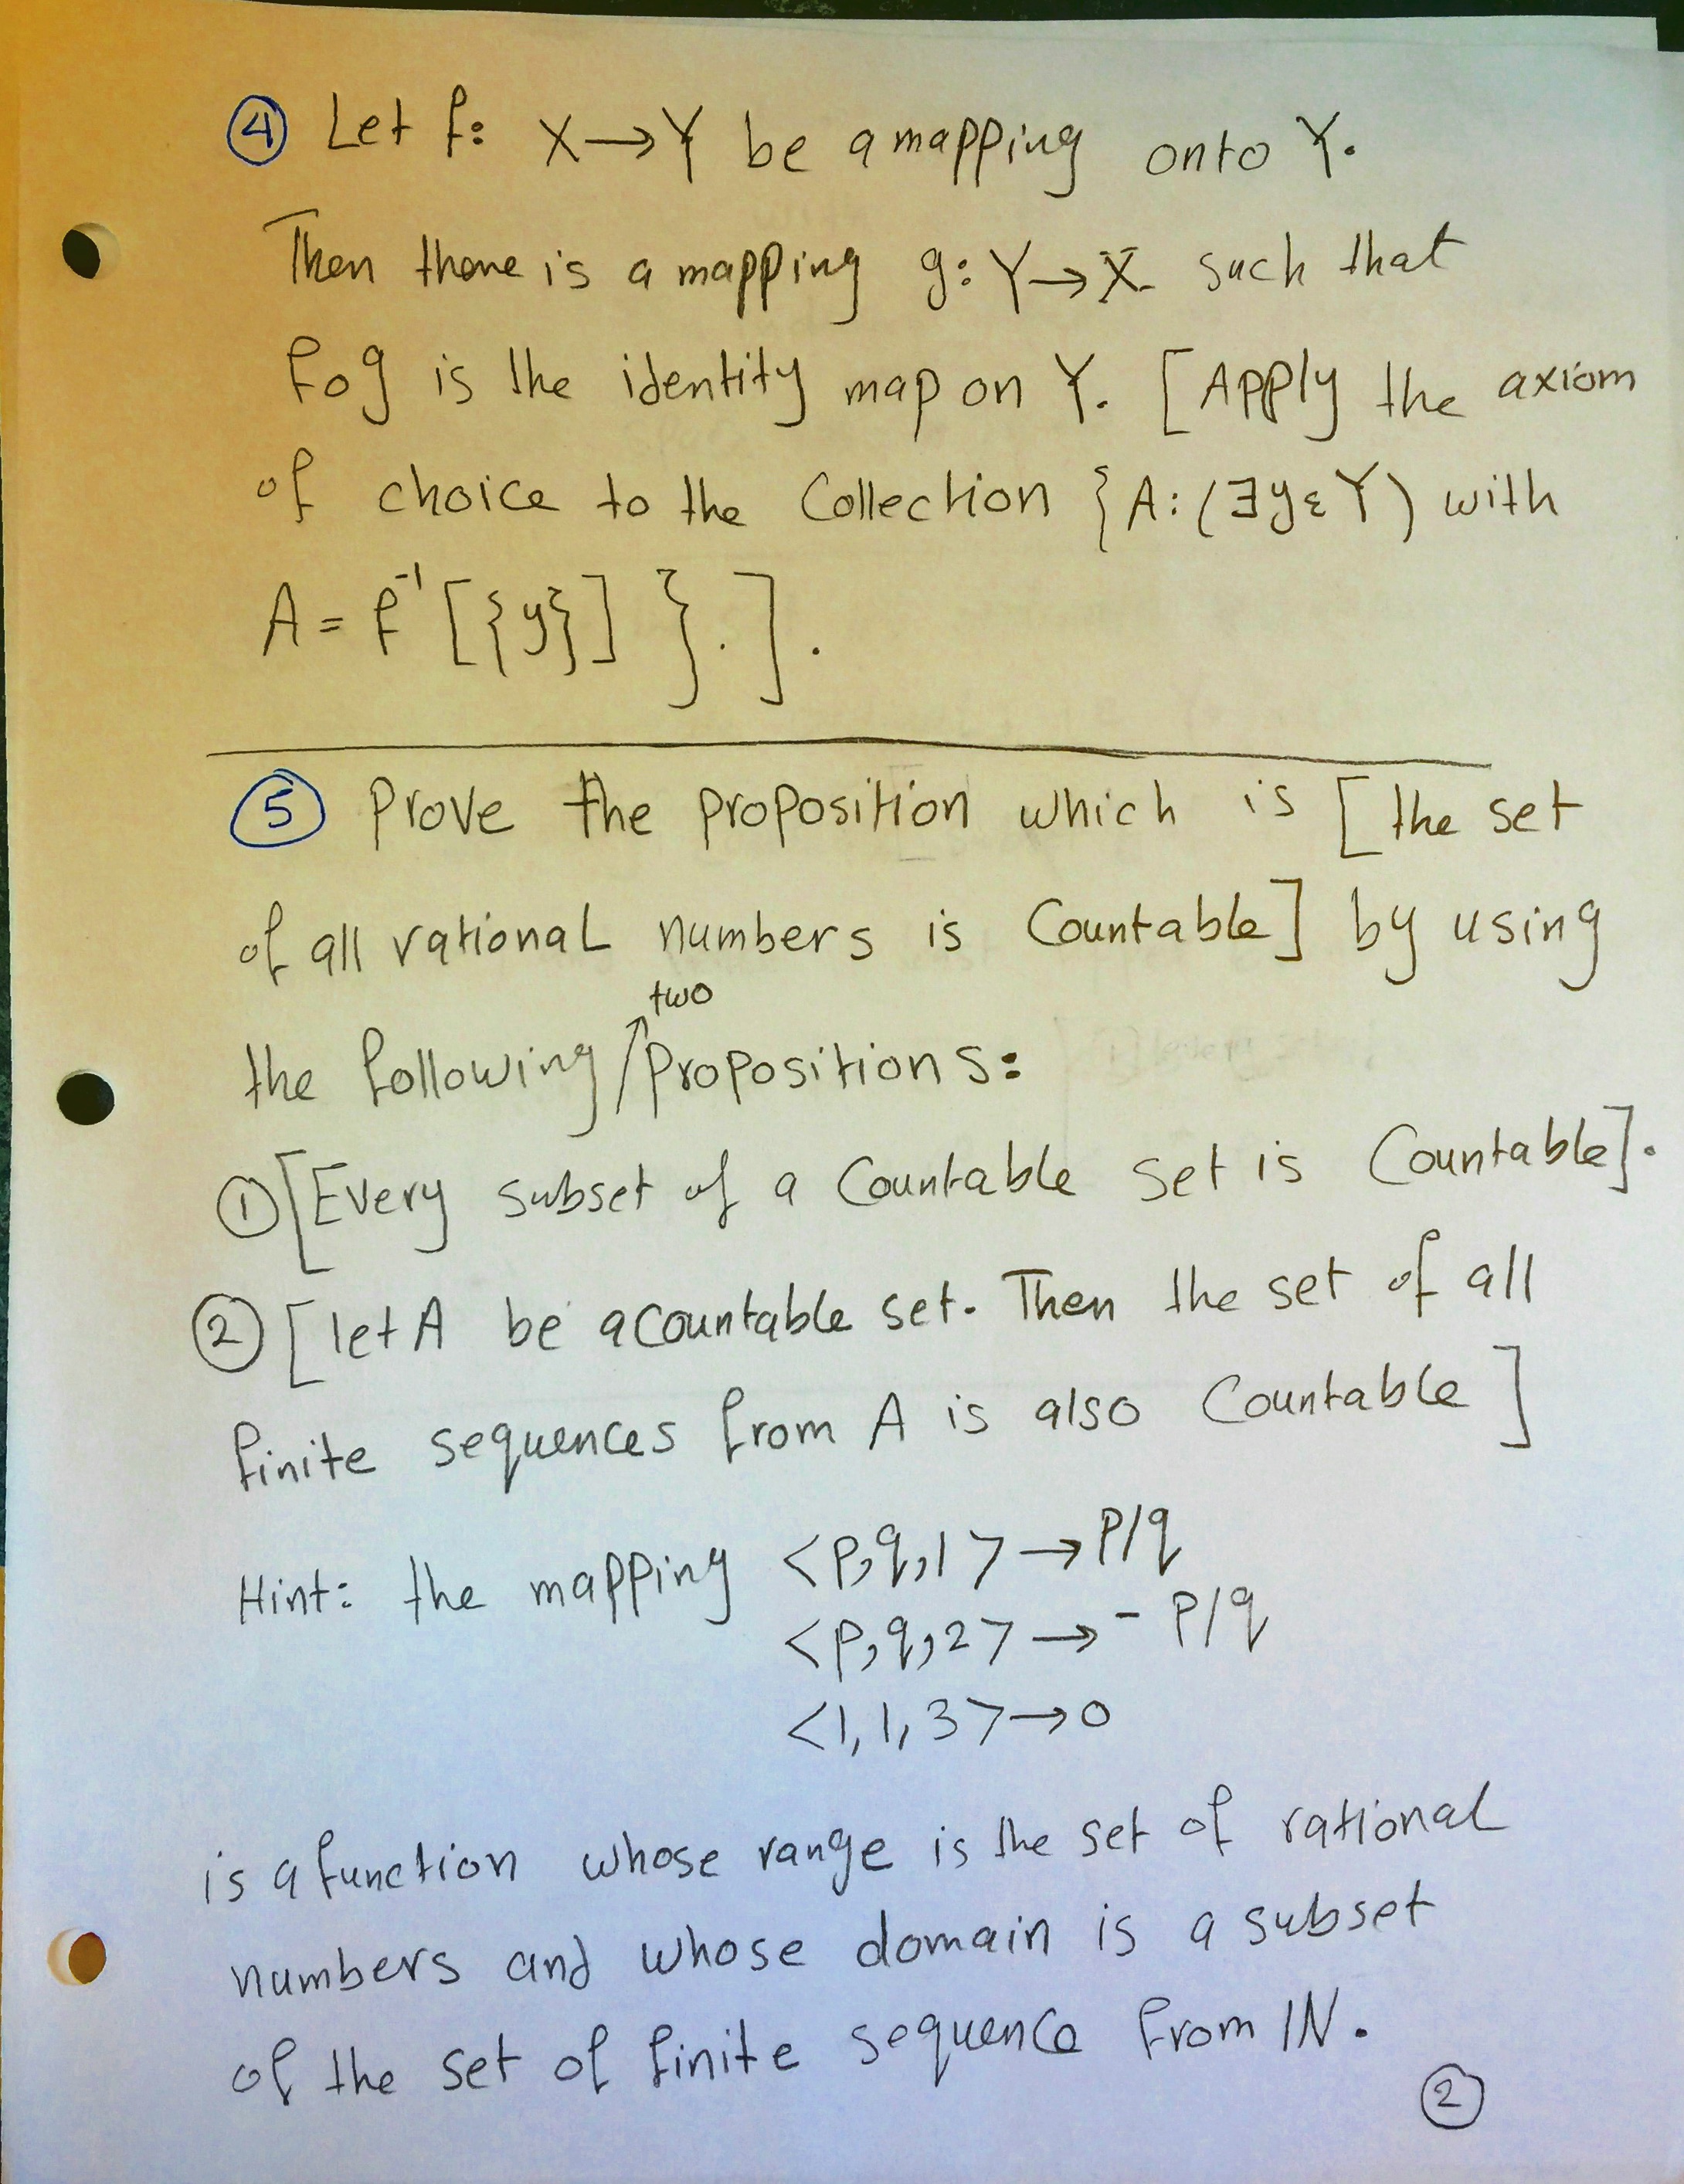 ④ Let f: X→Y be a mapping onto Y.
Then there is a mapping g: Y→X such that
fog is the identity map on Y. [Apply the axiom
of choice to the Collection {A:(∃yεY) with
A = f⁻¹[{y}] }.].
⑤ Prove the proposition which is [the set
of all rational numbers is Countable] by using
the following two propositions:
①[Every subset of a Countable set is Countable].
② [let A be a countable set. Then the set of all
finite sequences from A is also Countable]
Hint: the mapping <p,q,1> → p/q
<p,q,2> → - p/q
<1,1,3> → 0
is a function whose range is the set of rational
numbers and whose domain is a subset
of the set of finite sequence from IN.
②